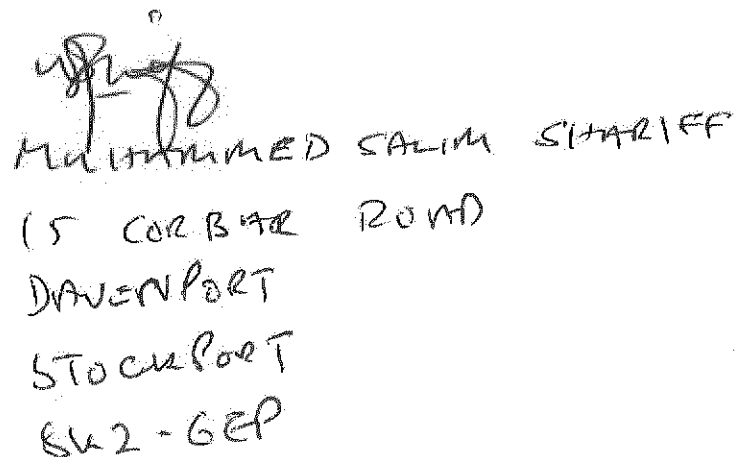 MUHAMMED SALIM SHARIFF
15 CORBAR ROAD
DAVENPORT
STOCKPORT
SK2-6EP